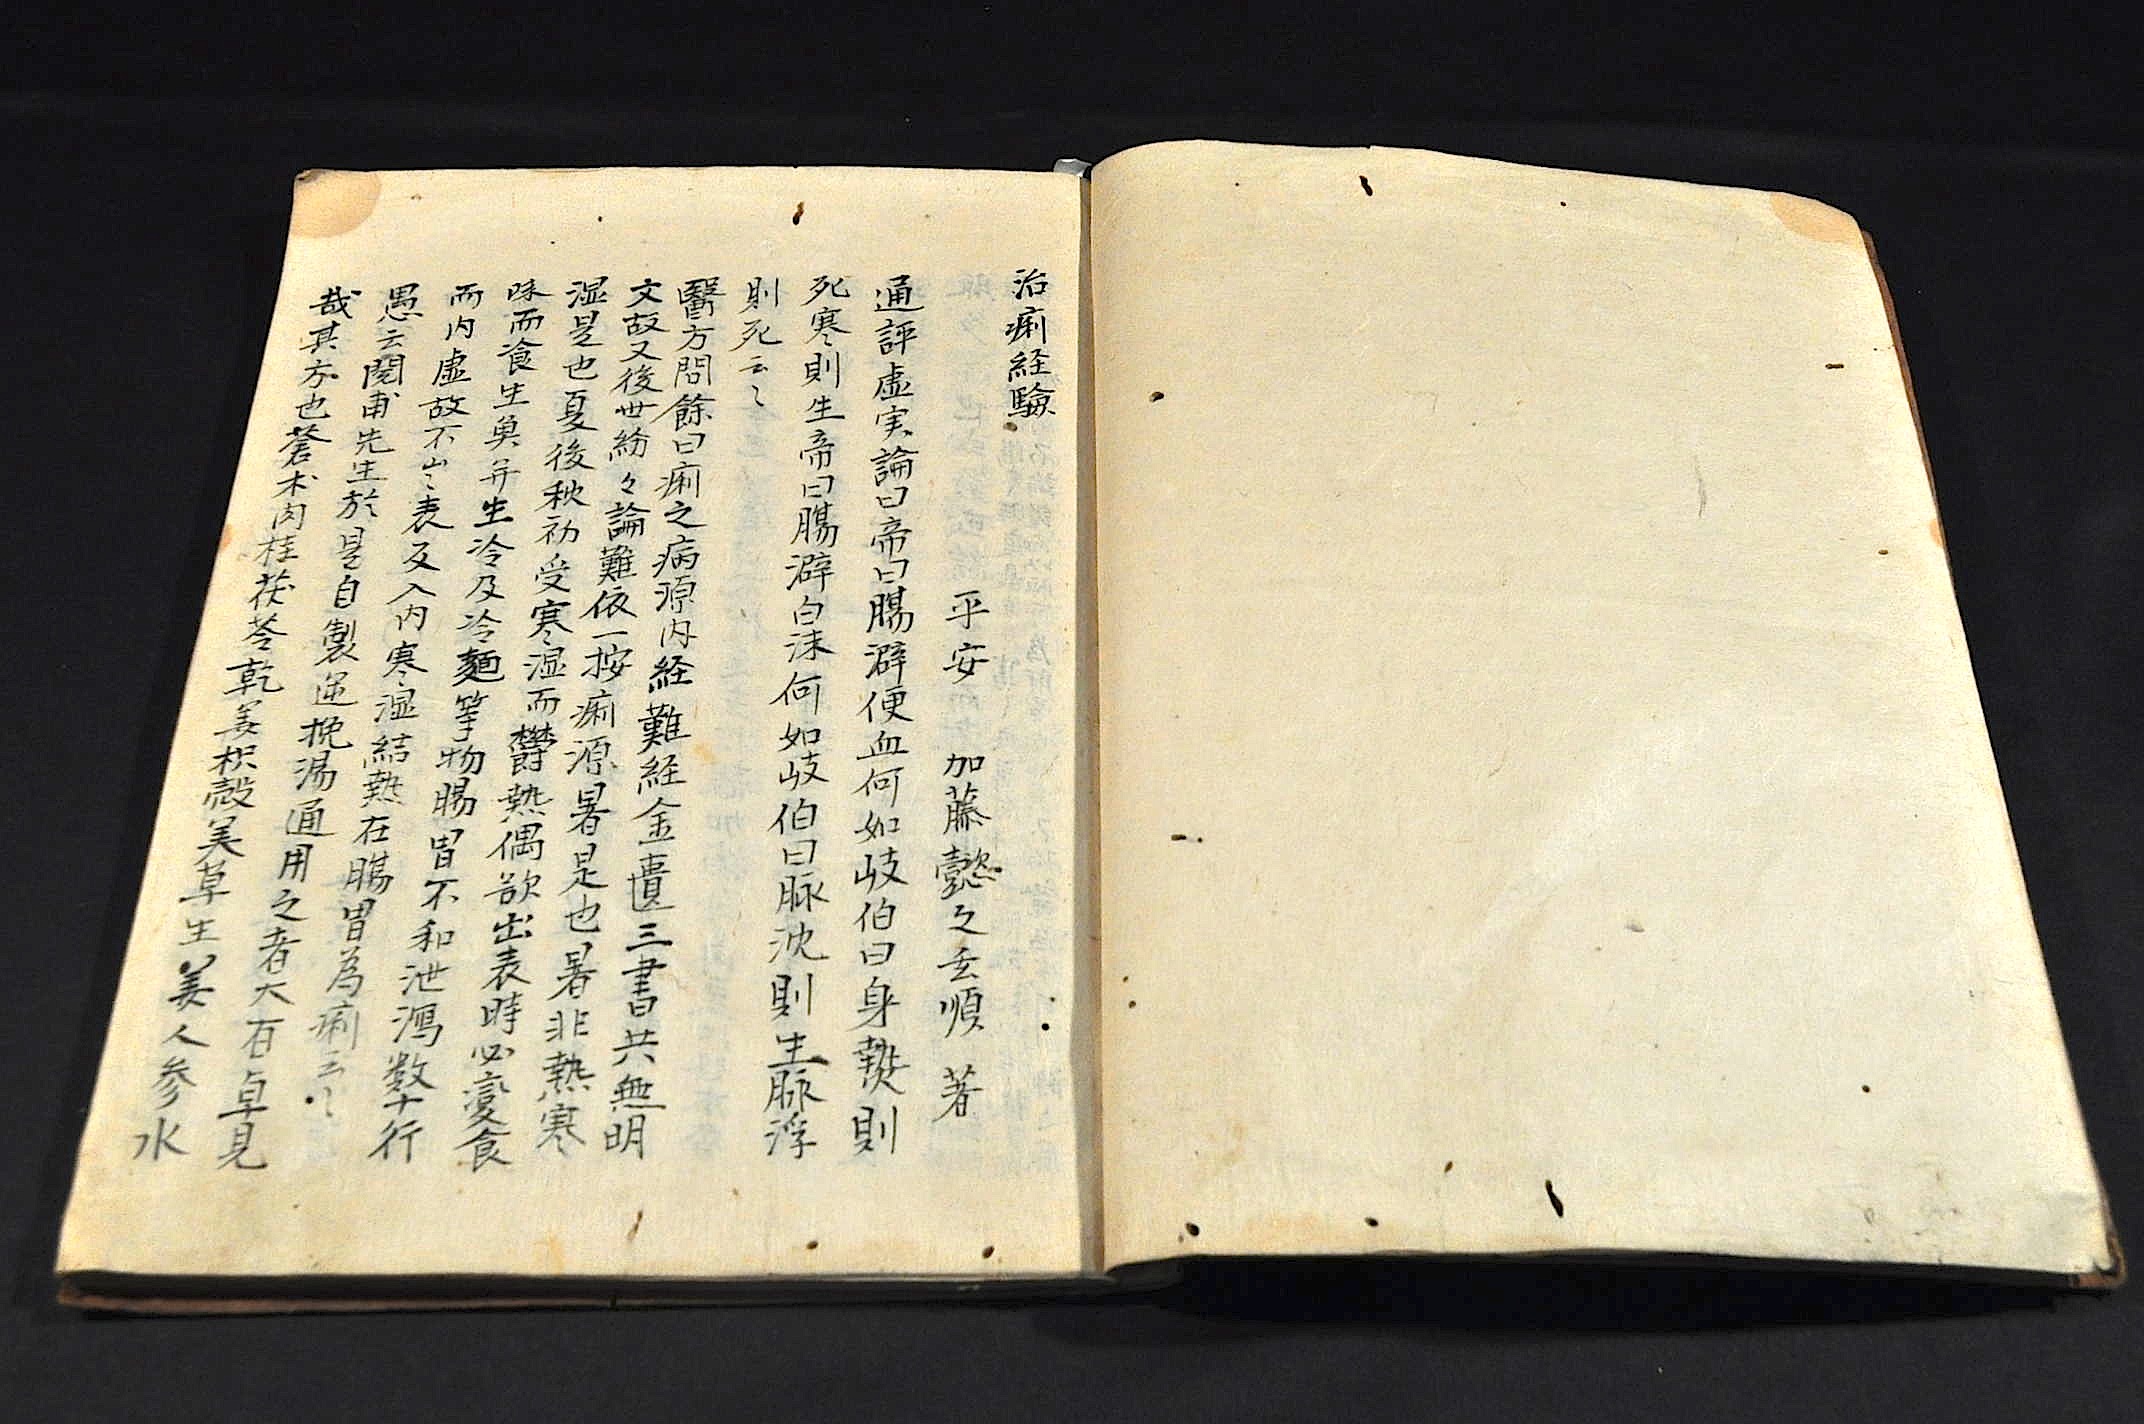 治痢経驗
平安 加藤懿之玄順 著
通評虚実論曰帝曰腸澼便血何如岐伯曰身熱則
死寒則生帝曰腸澼白沫何如岐伯曰脉沈則生脉浮
則死云〻
醫方問餘曰痢之病源内経難経金匱三書共無明
文故又後世紛々論難依一按痢源暑是也暑非熱寒
湿是也夏後秋初受寒湿而欝熱偶欲出表時必変食
味而飡生臭并生冷及冷麺等物腸胃不和泄瀉数行
而内虚故不出表反入内寒湿結熱在腸胃為痢云〻
愚云閲甫先生於是自製逆挽湯通用之者大有卓見
哉其方也蒼朮肉桂茯苓乾姜枳殻美草生姜人参水